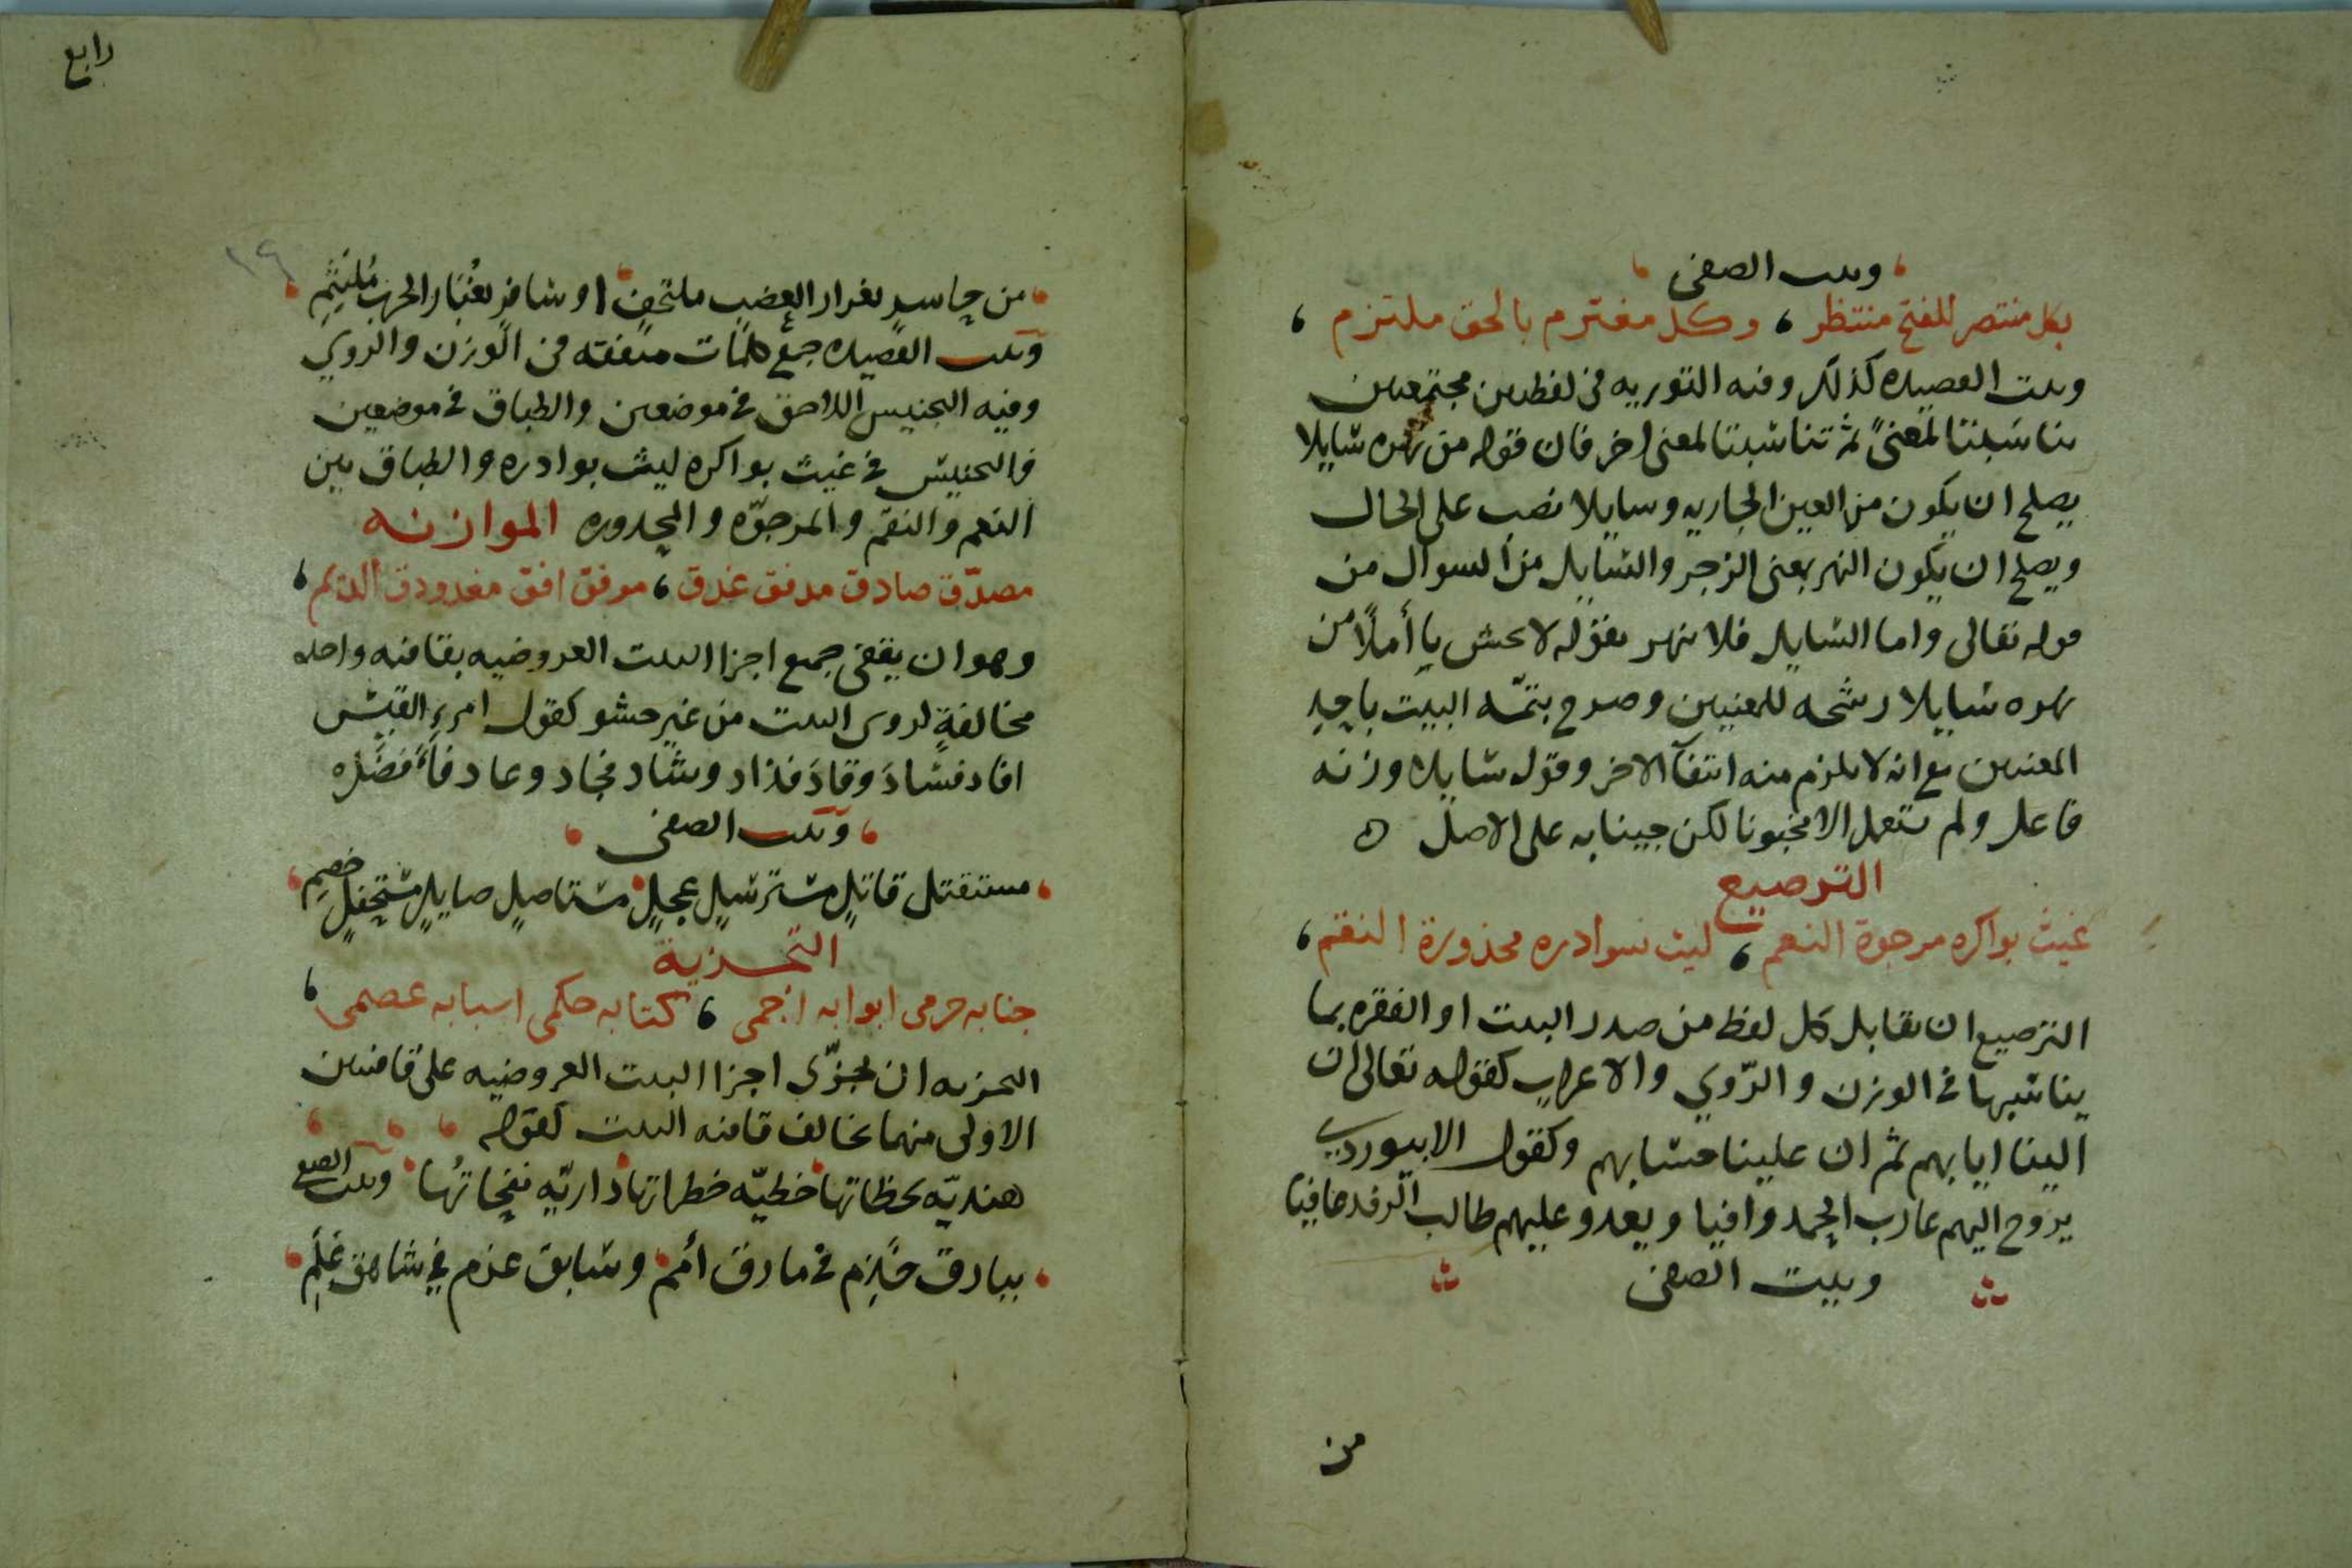 وبيت الصفي
بكل منتصر للفتح منتظر ، وكل معتزم بالحق ملتزم ،
وبيت القصيده كذلك وفيه التوريه في لفظين مجتمعين
تناسبتا لمعنىً ثم تناسبتا لمعنى اخر فان قوله من نهره سايلا
يصلح ان يكون من العين الجاريه وسايلا نصب على الحال
ويصلح ان يكون النهر بمعنى الزجر والسايل من السوال من
قوله تعالى واما السايل فلا تنهر فقوله لا تخش يا أملاً من
نهره سايلا رشحه للمعنيين وصرح بتمه البيت باحد
المعنيين مع انه لا يلزم منه انتفآ الاخر وقوله سايلا وزنه
فاعل ولم يستعمل الا مخبونا لكن جينا به على الاصل ه
الترصيع
غيث بواكره مرجوة النعم ، ليث بوادره محذورة النقم ،
الترصيع ان تقابل كل لفظ من صدر البيت او الفقره بما
يناسبها في الوزن والرّوي والاعراب كقوله تعالى ان
الينا ايابهم ثم ان علينا حسابهم وكقول الابيوردي
يروح اليهم عازب الحمد وافيا ويغدو عليهم طالب الرفد عافيا
وبيت الصفي
من
رابع
١٩
من حاسر بغرار العضب ملتحف او سافر بغُبَار الحرب مُلتَثِم
وبيت القصيده جمع كلمات متفقه في الوزن والروي
وفيه التجنيس اللاحق في موضعين والطباق في موضعين
فالتجنيس في غيث بواكره ليث بوادره والطباق بين
النعم والنقم والمرجوّه والمحذوره الموازنه
مصدّق صادق مدفق غدق ، موفق افق مغدودق الديم ،
وهو ان يقفى جميع اجزا البيت العروضيه بقافيه واحده
مخالفةٍ لروي البيت من غير حشو كقول امرء القيس
افاد فسادَ وقادَ فذاد وشاد فجاد وعاد فأفضَلَ
وبيت الصفي
مستقتل قاتلٍ مسترسلٍ عجلٍ مستاصلٍ صايلٍ مستفحلٍ خصم
التجزية
جنابه حرمي ابوابه اجمي ، كتابه حكمي اسبابه عصمي ،
التجزيه ان تجزّى اجزا البيت العروضيه على قافيتين
الاولى منهما تخالف قافيه البيت كقوله
هنديّه لحظاتها خطيّه خطراتها داريّه نفحاتُها وبيت الصفي
ببارق خَذِم في مازق أمم وسابق عزم في شاهق عَلَم